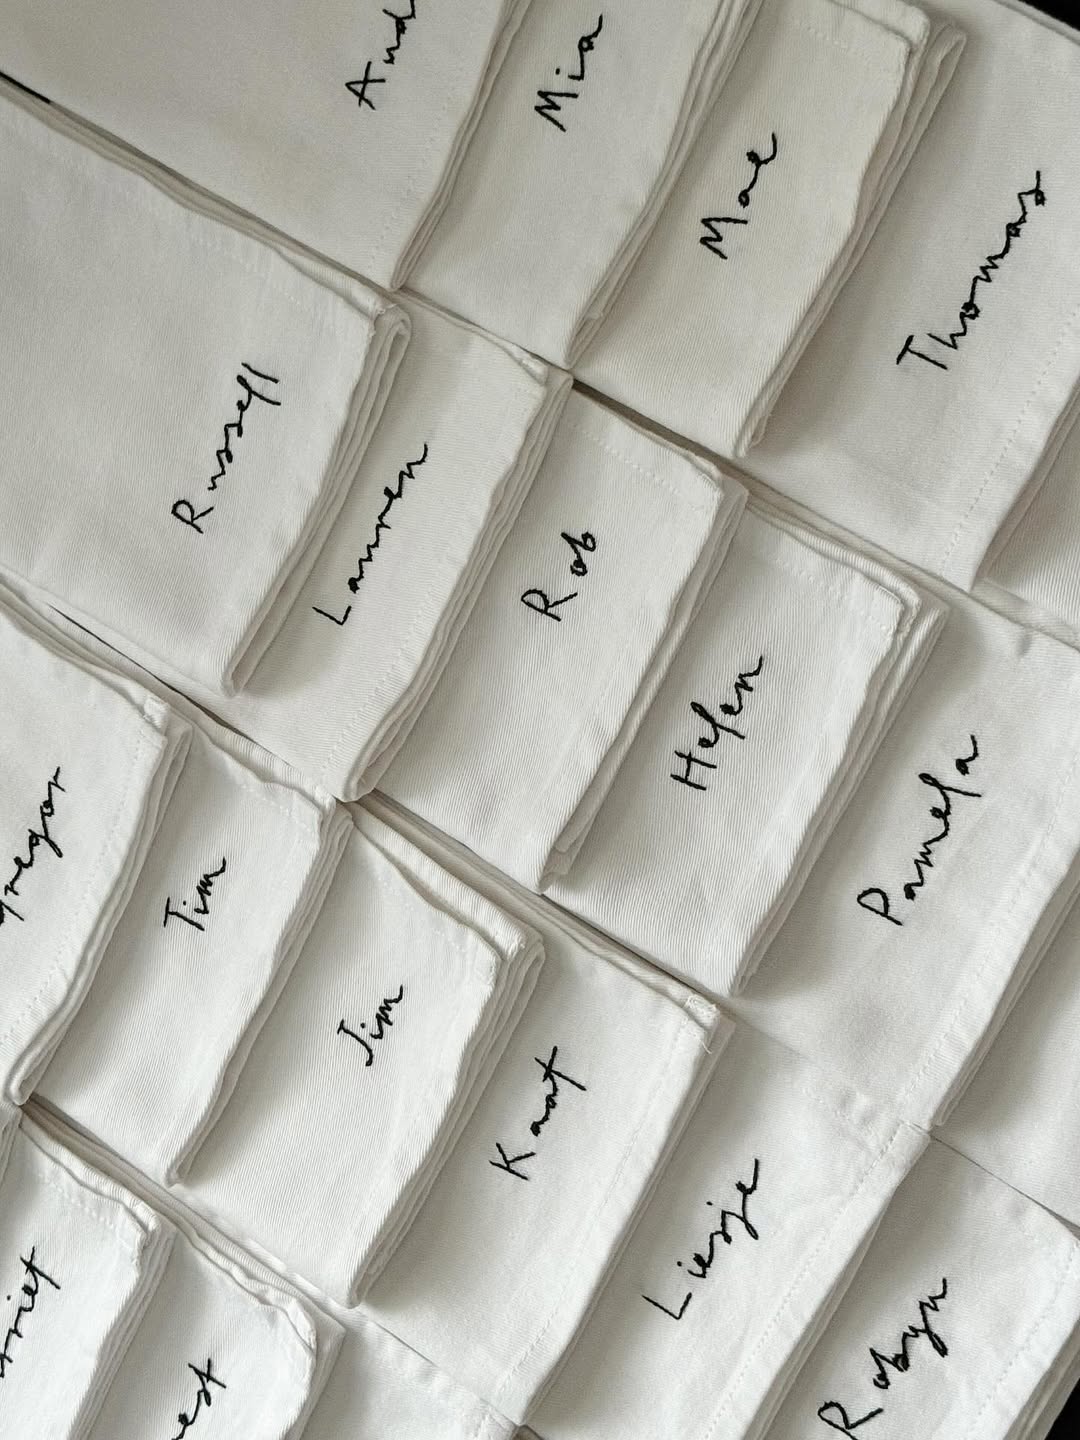 And
Mia
Mae
Thomas
Russell
Lauren
Rob
Helen
Pamela
Tim
Jim
Kaat
Liesje
Robyn